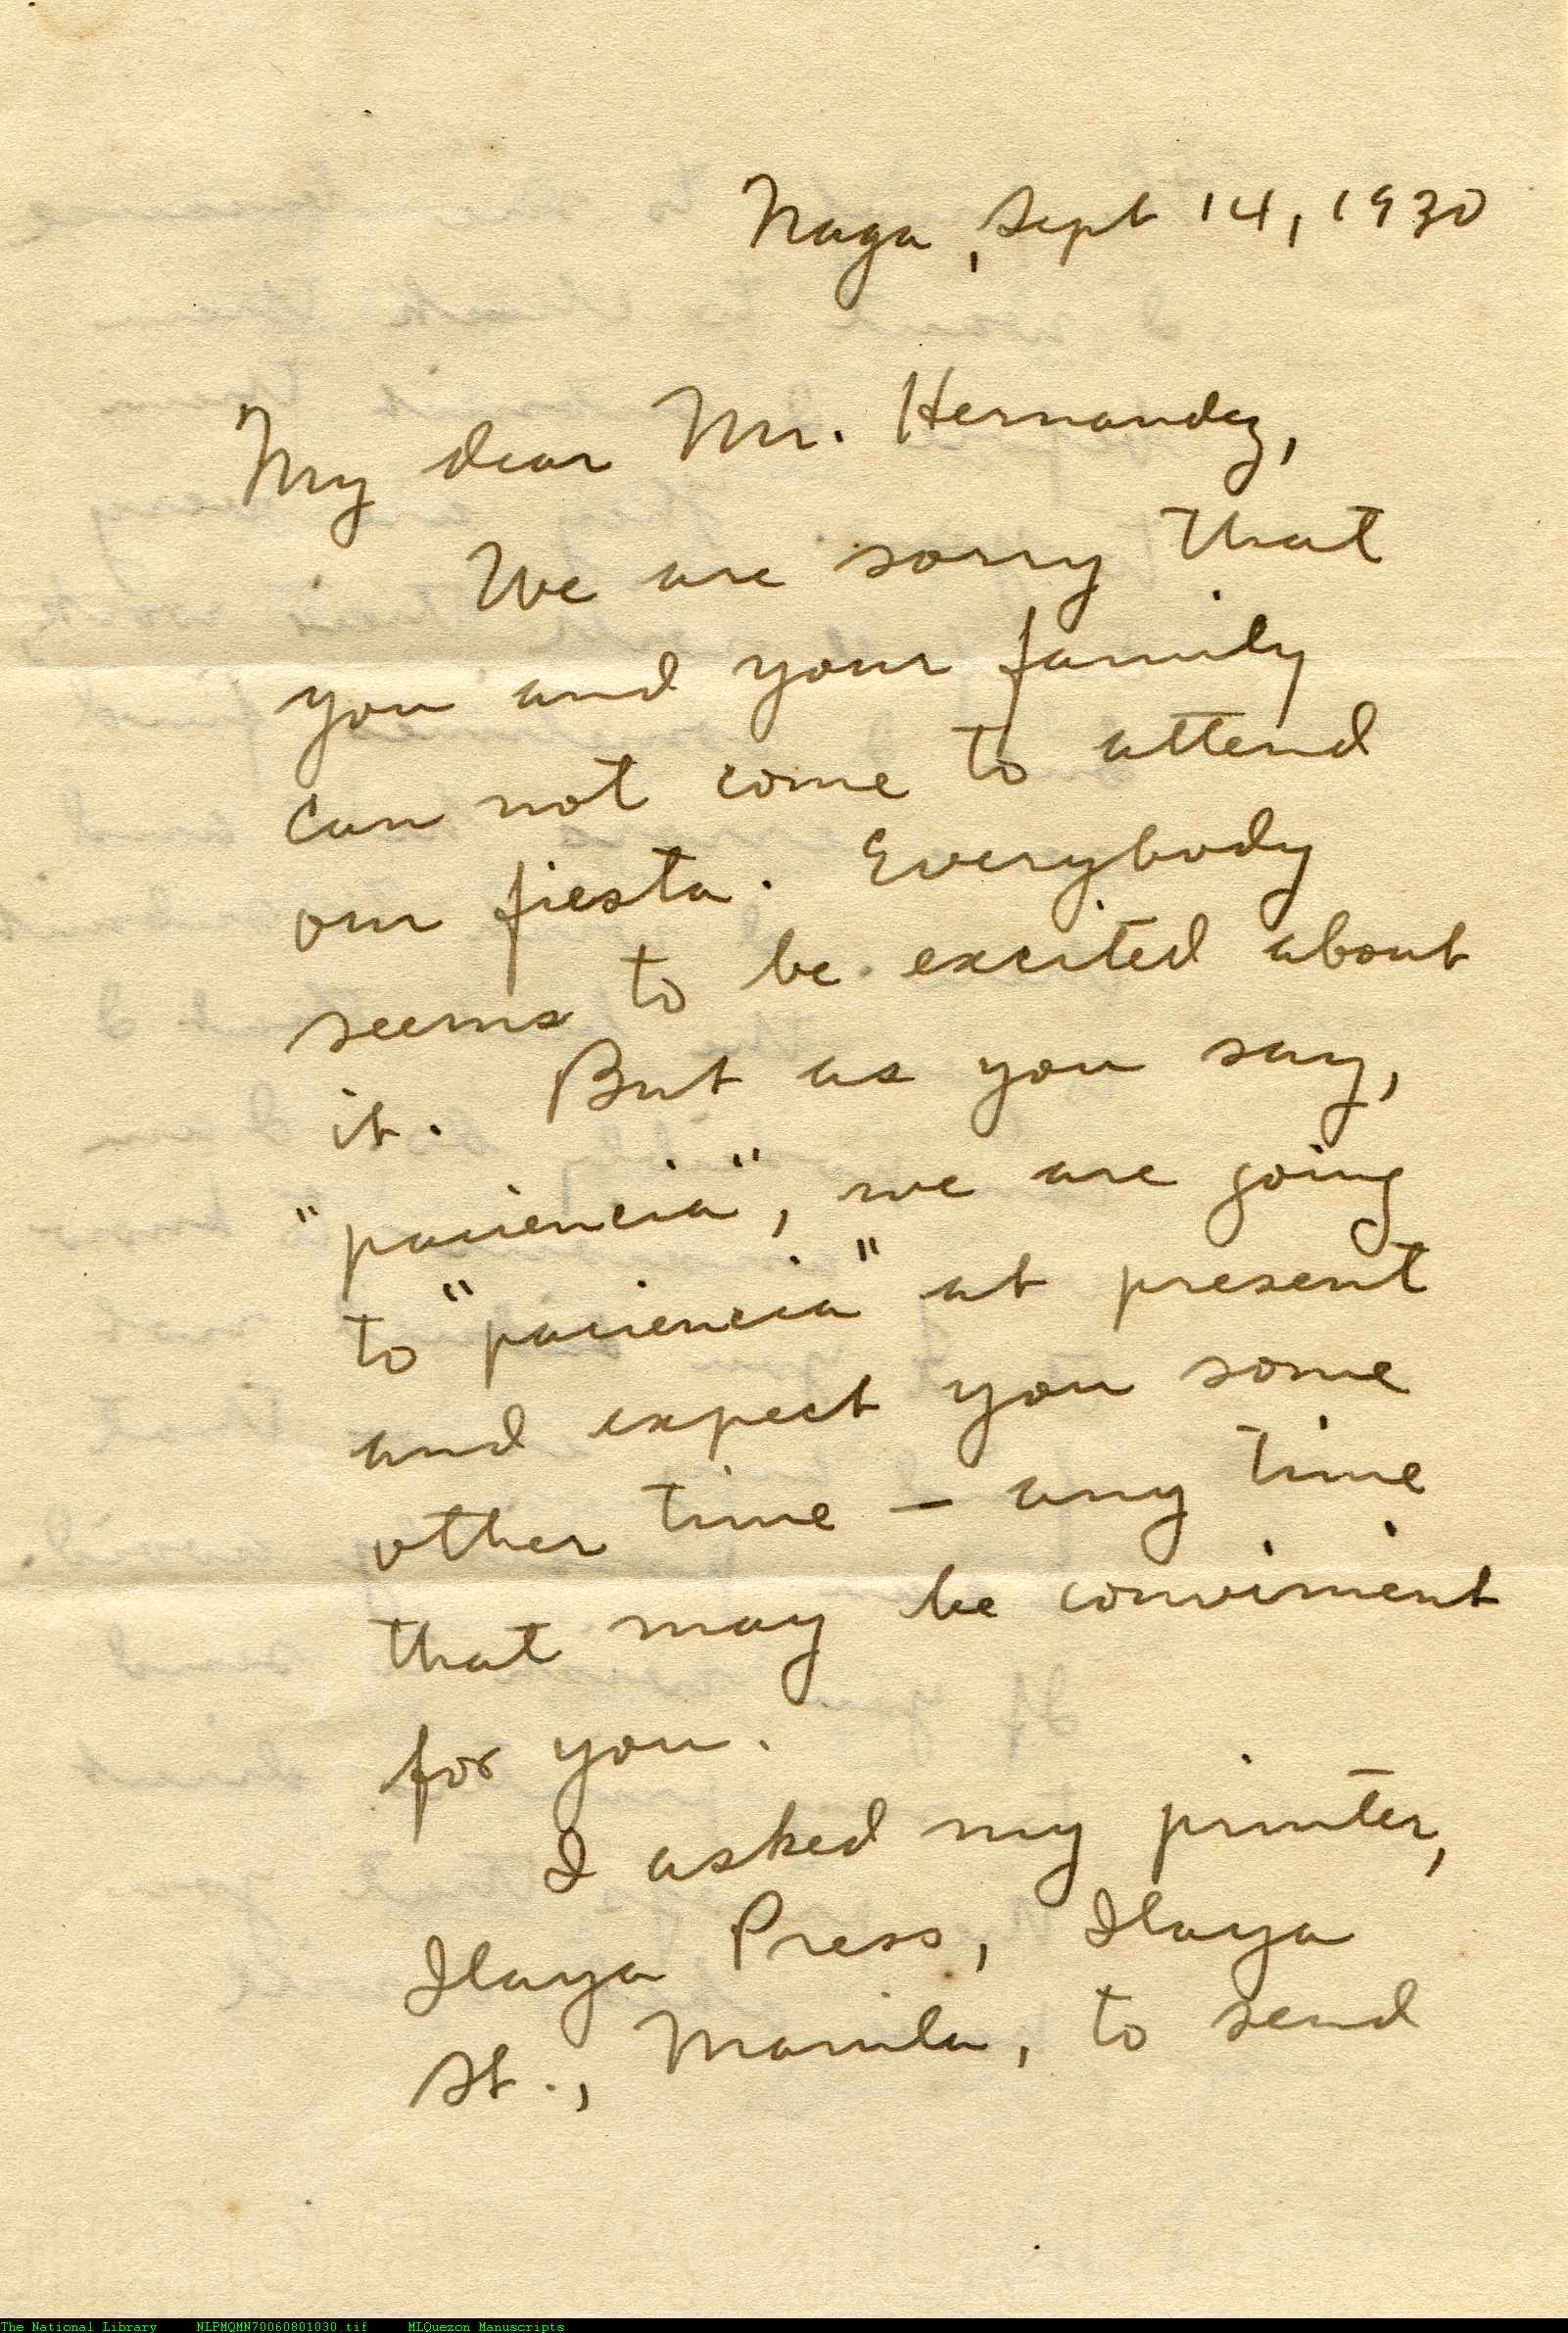 Naga, Sept 14, 1930
My dear Mr. Hernandez,
We are sorry that
you and your family
can not come to attend
our fiesta. Everybody
seems to be excited about
it. But as you say,
"paciencia", we are going
to "paciencia" at present
and expect you some
other time - any time
that may be convinient
for you.
I asked my printer,
Ilaya Press, Ilaya
St., Manila, to send
The National Library NLPMQMN70060801030.tif MLQuezon Manuscripts